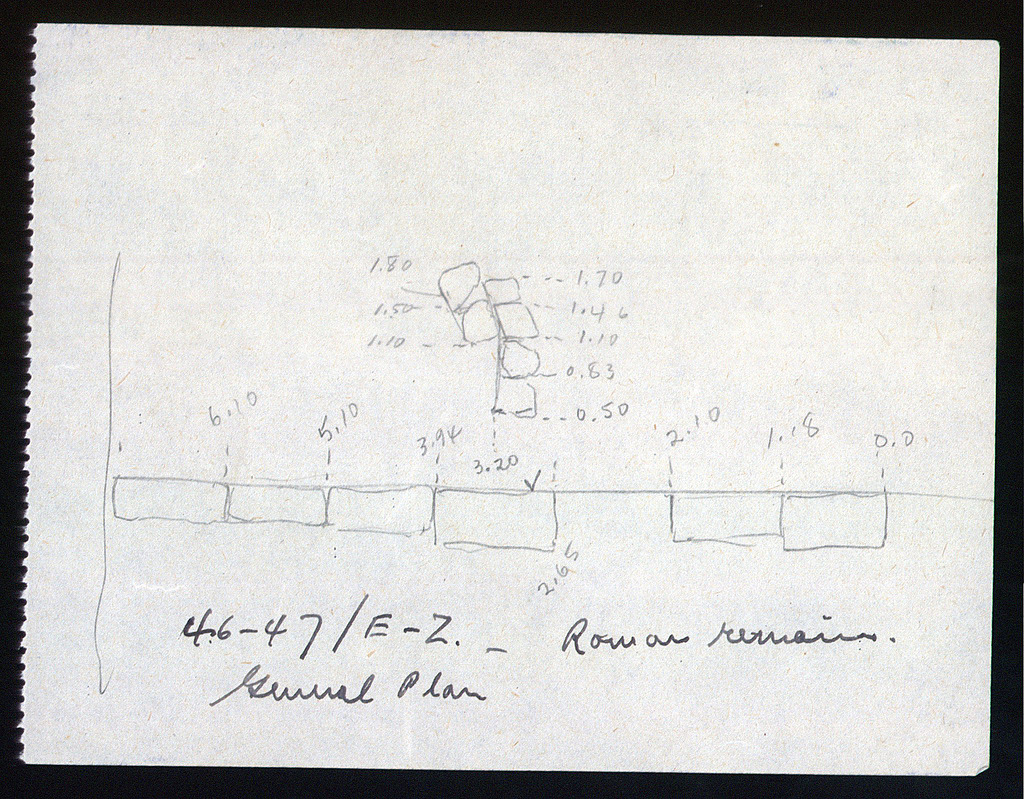 1.80
1.70
1.50
1.46
1.10
1.10
0.83
0.50
6.10
5.10
3.94
3.20
2.10
1.18
0.0
2.65
46-47/E-Z. - Roman remains.
General Plan